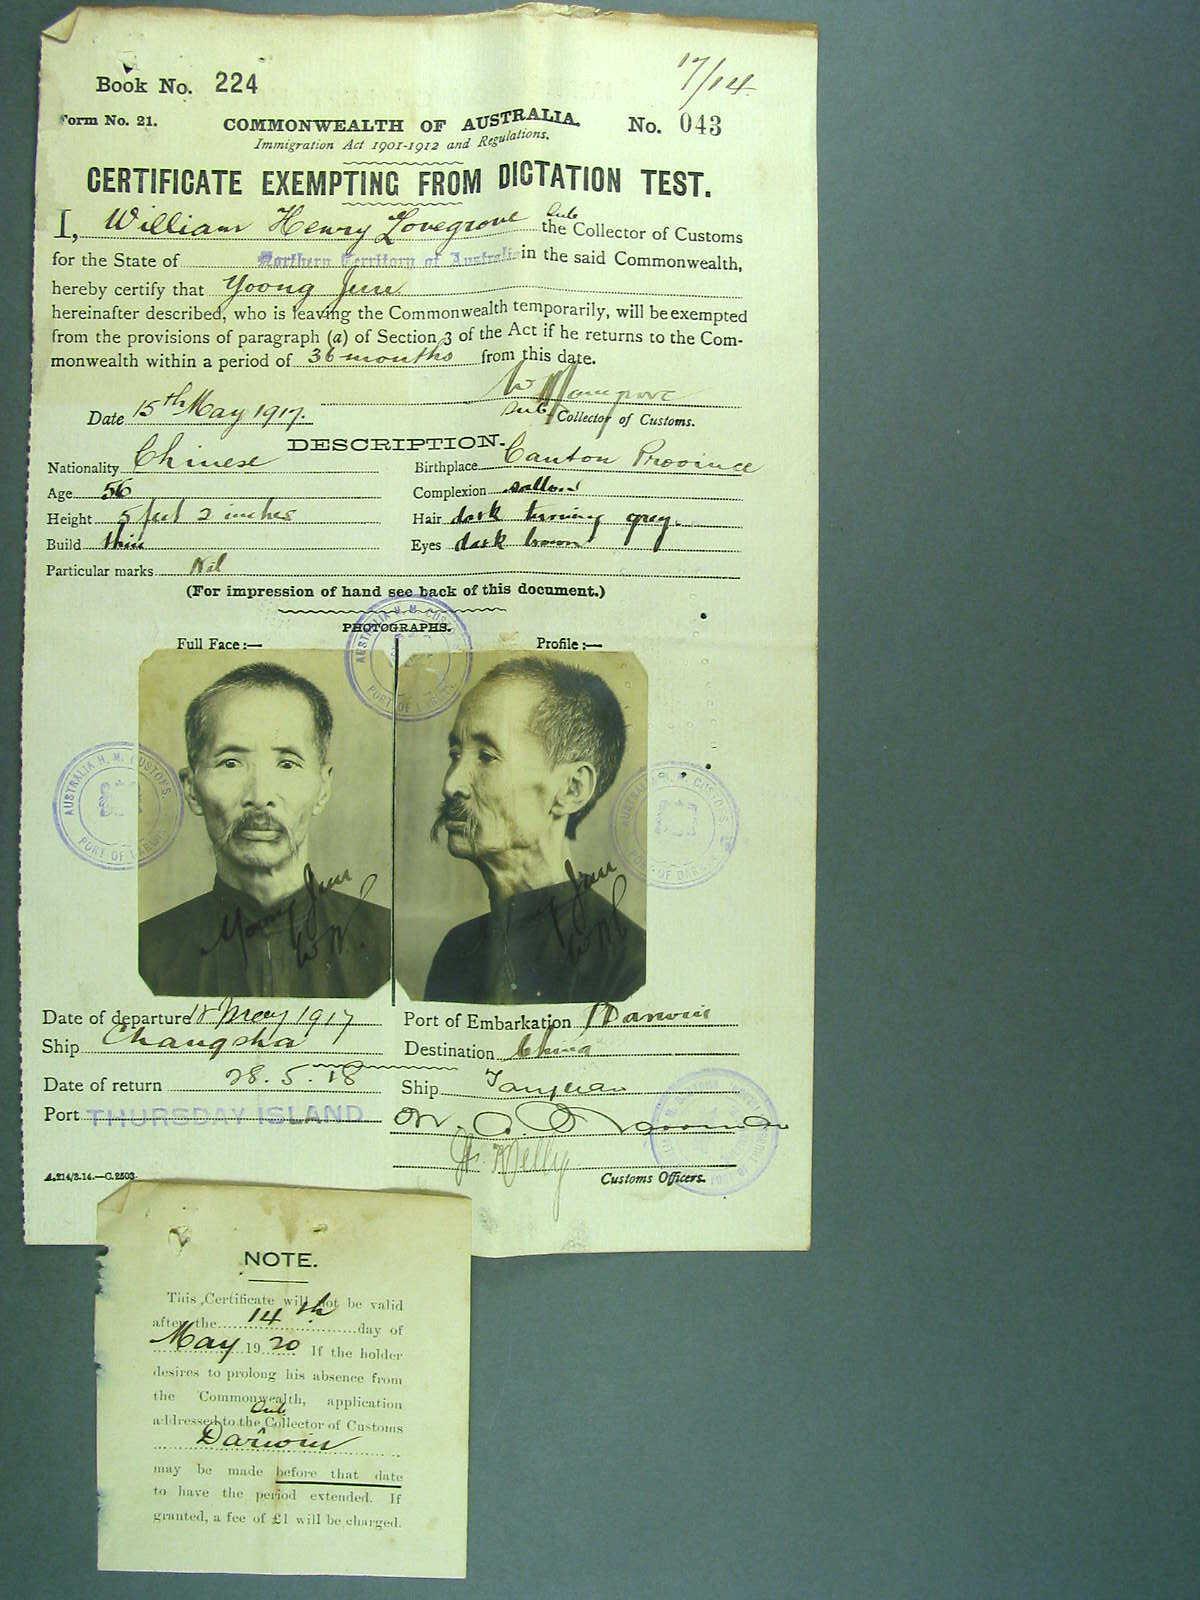 17/14
Book No. 224
Form No. 21.
COMMONWEALTH OF AUSTRALIA.
No. 043
Immigration Act 1901-1912 and Regulations.
CERTIFICATE EXEMPTING FROM DICTATION TEST.
I, William Henry Lovegrove Sub the Collector of Customs
for the State of Northern Territory of Australia in the said Commonwealth,
hereby certify that Yoong Juu
hereinafter described, who is leaving the Commonwealth temporarily, will be exempted
from the provisions of paragraph (a) of Section 3 of the Act if he returns to the Com-
monwealth within a period of 36 months from this date.
W H Lovegrove
Date 15th May 1917.
Sub Collector of Customs.
DESCRIPTION.
Nationality Chinese
Birthplace Canton Province
Age 56
Complexion sallow
Height 5 feet 2 inches
Hair dark turning grey.
Build thin
Eyes dark brown
Particular marks Nil
(For impression of hand see back of this document.)
PHOTOGRAPHS.
Full Face:—
Profile:—
AUSTRALIA H. M. CUSTOMS.
PORT OF DARWIN
AUSTRALIA H. M. CUSTOMS.
PORT OF DARWIN
AUSTRALIA H. M. CUSTOMS.
PORT OF DARWIN
Yoong Juu
W H L
Yoong Juu
W H L
Date of departure 18 May 1917
Port of Embarkation Darwin
Ship Changsha
Destination China
Date of return 28.5.18
Ship
Port THURSDAY ISLAND
Customs Officers.
A.214/3.14.—C.2503.
NOTE.
This Certificate will not be valid
after the 14th day of
May 1920 If the holder
desires to prolong his absence from
the Commonwealth, application
addressed to the Sub Collector of Customs
Darwin
may be made before that date
to have the period extended. If
granted, a fee of £1 will be charged.